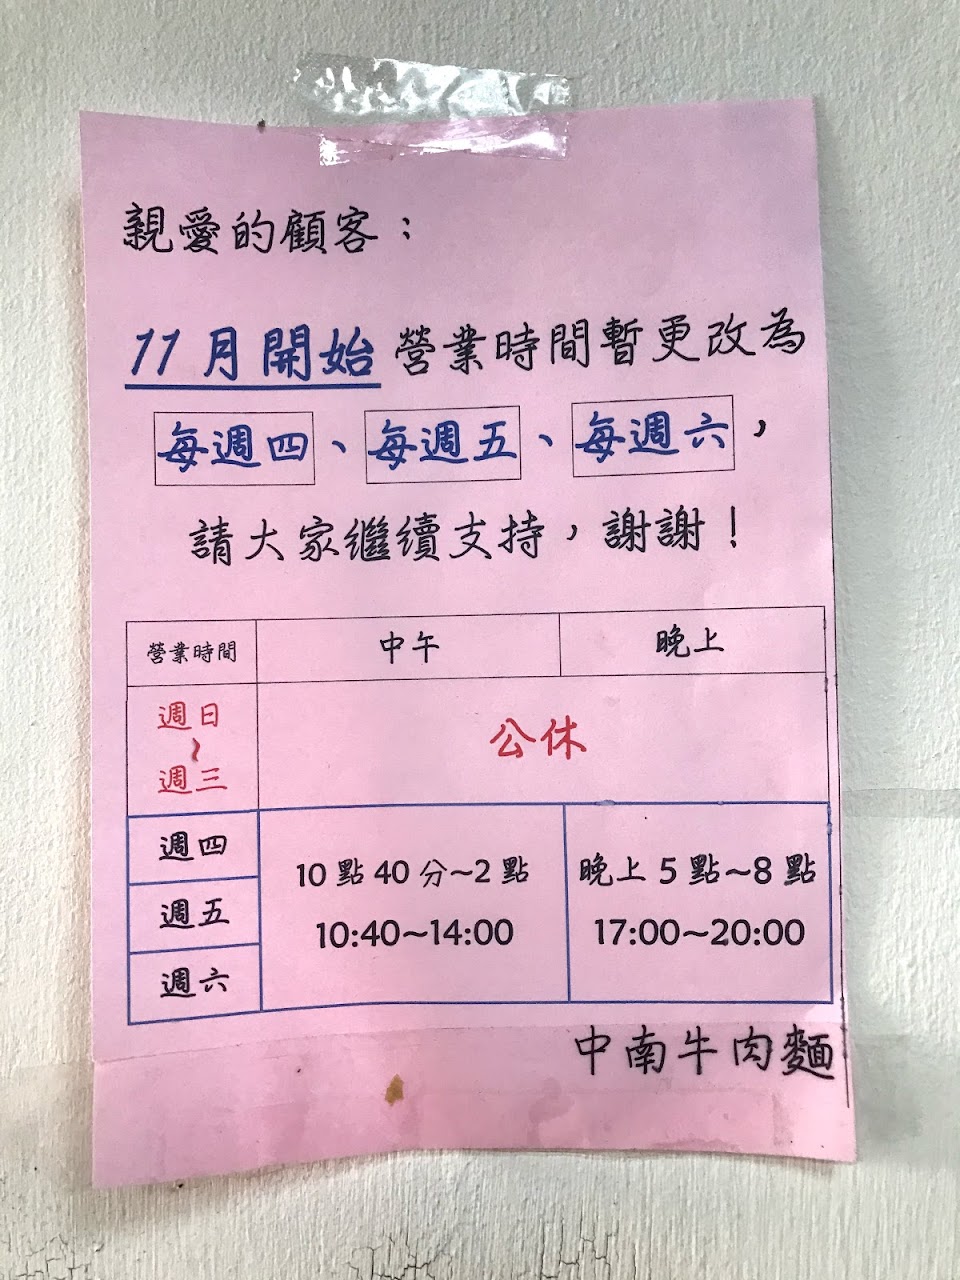 親愛的顧客：
11月開始營業時間暫更改為
每週四、每週五、每週六，
請大家繼續支持，謝謝！
營業時間 中午 晚上
週日
~
週三
公休
週四
週五
週六
10點40分~2點
10:40~14:00
晚上5點~8點
17:00~20:00
中南牛肉麵